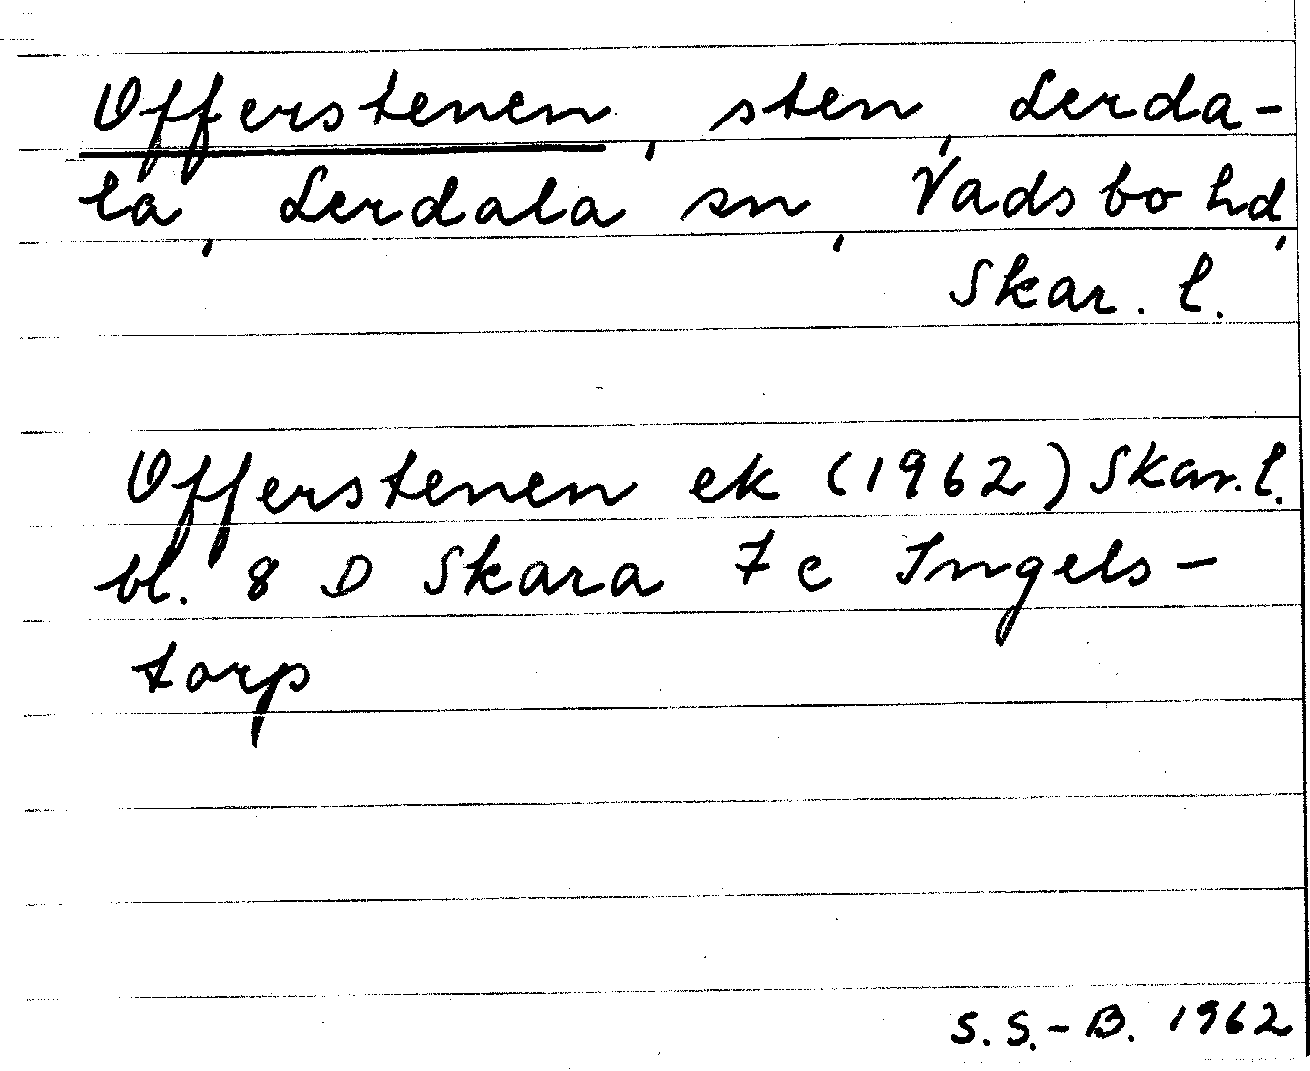 Offerstenen, sten, Lerda-
la, Lerdala sn, Vadsbo hd,
Skar. l.
Offerstenen ek (1962) Skar. l.
bl. 8 D Skara 7 c Ingels-
torp
S. S.-B. 1962